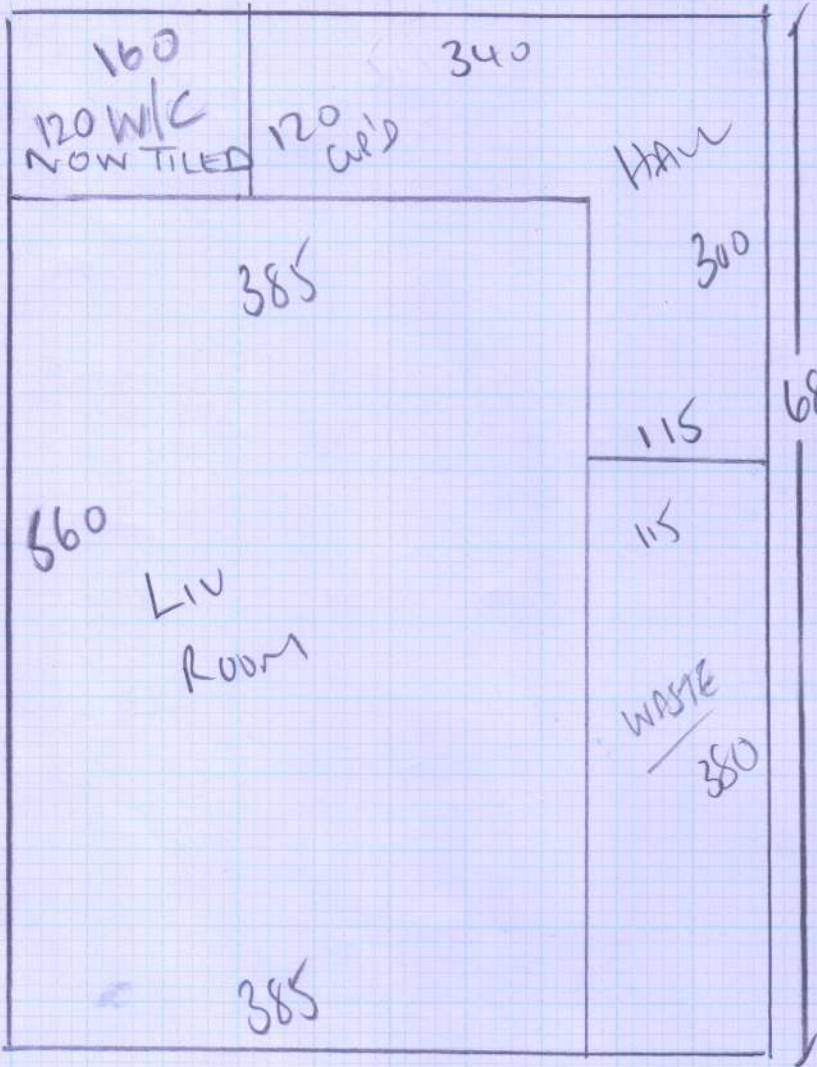 160
340
120 W/C
NOW TILED
120
CUP'D
HALL
300
385
68
115
115
560
LIV
ROOM
WASTE
380
385